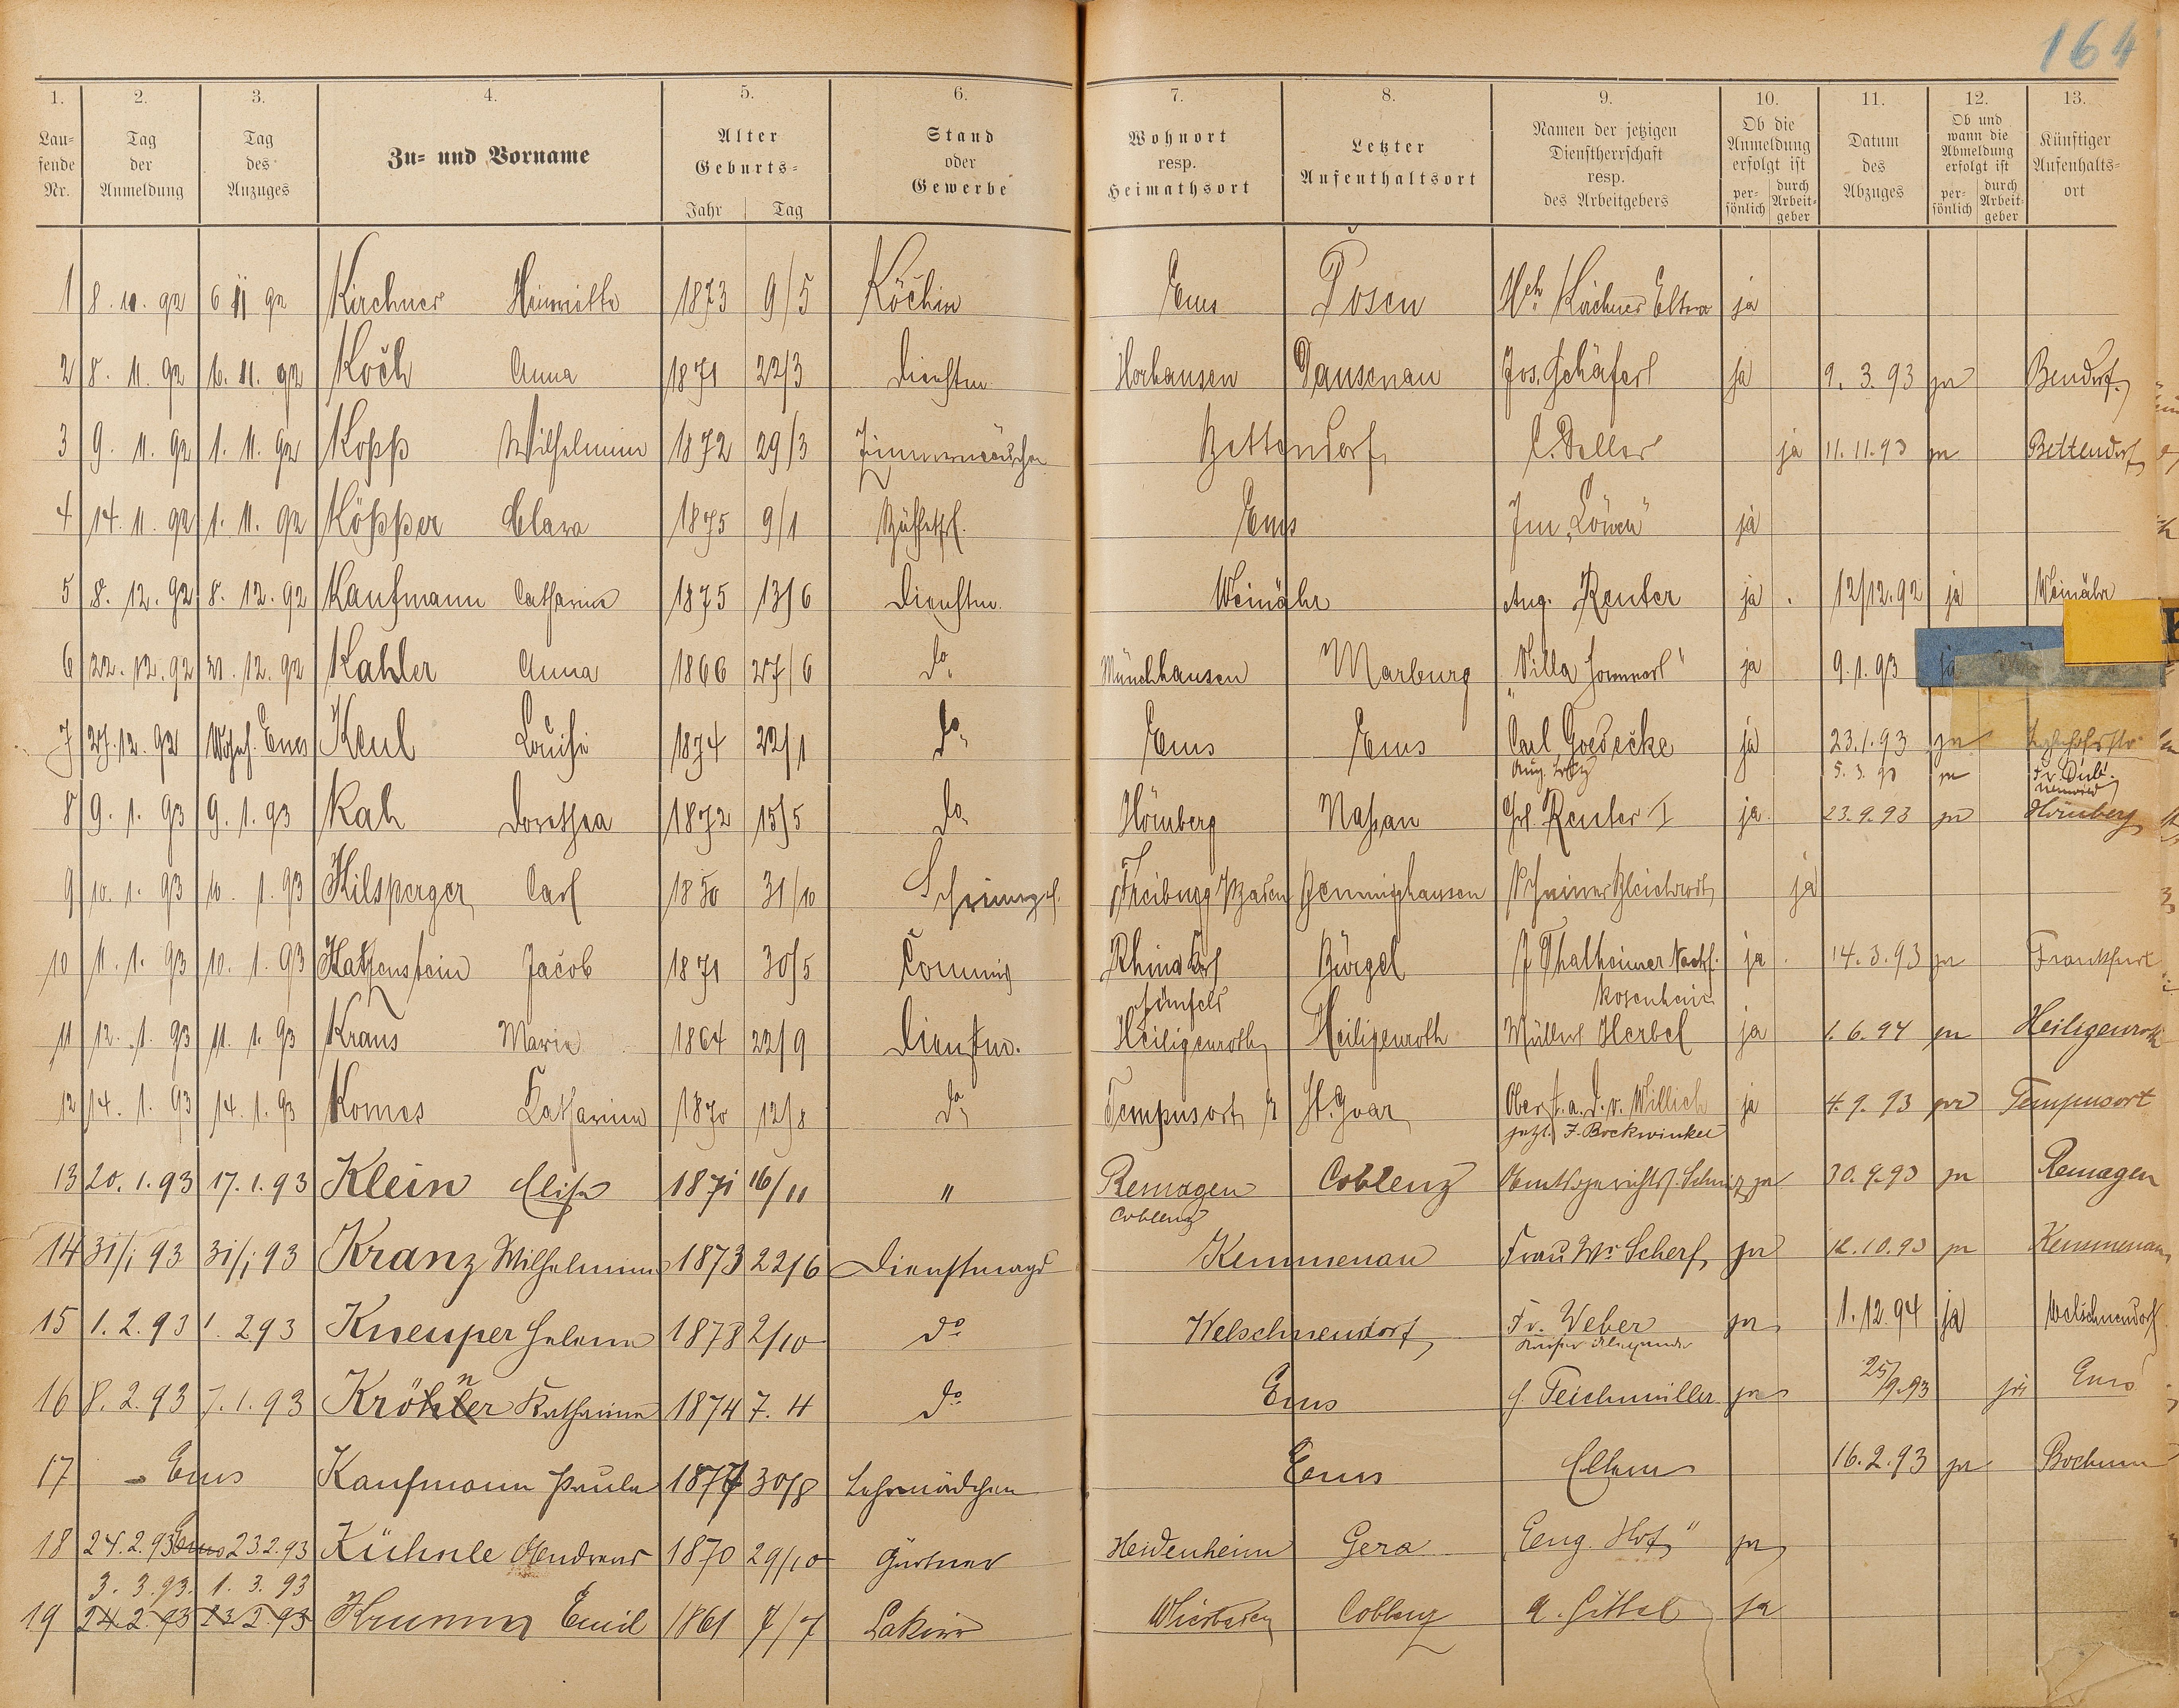 164
1. 2. 3. 4. 5. 6. 7. 8. 9. 10. 11. 12. 13.
Lau-fende Nr. Tag der Anmeldung Tag des Anzuges Zu- und Vorname Alter Geburts- Jahr Tag Stand oder Gewerbe Wohnort resp. Heimathsort Letzter Aufenthaltsort Namen der jetzigen Dienstherrschaft resp. des Arbeitgebers Ob die Anmeldung erfolgt ist per-sönlich durch Arbeit-geber Datum des Abzuges Ob und wann die Abmeldung erfolgt ist per-sönlich durch Arbeit-geber Künftiger Aufenthalts-ort
1 8. 11. 92 6 11 92 Kirchner 1873 9/5 Köchin Ems Posen Kirchner Eltern ja
2 8. 11. 92 6. 11. 92 Koch Anna 1871 22/3 Dienstm. Horhausen Dausenau Jos. Schäfer ja 9. 3. 93 ja Bendorf
3 9. 11. 92 1. 11. 92 Kopp Wilhelmine 1872 29/3 Bettendorf C. Deller ja 11. 11. 93 ja Bettendorf
4 14. 11. 92 1. 11. 92 Köpper Clara 1875 9/1 Ems Im „Löwen" ja
5 8. 12. 92 8. 12. 92 Kaufmann Catharina 1875 13/6 Dienstm. Weinähr Aug. Reuter ja 12/12. 92 ja Weinähr
6 22. 12. 92 21. 12. 92 Kahler Anna 1866 27/6 do Münchhausen Marburg „Villa ja 9. 1. 93 ja
7 27. 12. 92 Ems Keul Louise 1874 22/1 do Ems Ems Carl Goedecke ja 23. 1. 93 ja
5. 3. 93 ja
8 9. 1. 93 9. 1. 93 Kah Dorothea 1872 15/5 do Hömberg Naßau Reuter I ja 23. 9. 93 ja Hömberg
9 10. 1. 93 10. 1. 93 Hilsperger Carl 1850 31/10 Freiburg Baden ja
10 11. 1. 93 10. 1. 93 Katzenstein Jacob 1871 30/5 Commis Rhina Bürgel J Thalheimer Nachf. ja 14. 3. 93 ja Frankfurt
Rosenheim
11 12. 1. 93 11. 1. 93 Kraus Marie 1864 22/9 Dienstm. Heiligenroth Heiligenroth Müller Herbel ja 1. 6. 94 ja Heiligenroth
12 14. 1. 93 14. 1. 93 Komes Katharina 1870 12/8 do Tempusort St. Goar Oberst. a. D. v. Willich ja 4. 9. 93 ja Tempusort
jetzt J. Bockwinkel
13 20. 1. 93 17. 1. 93 Klein Elise 1871 16/11 " Remagen Coblenz ja 30. 9. 93 ja Remagen
Coblenz
14 31/1 93 31/1 93 Kranz Wilhelmine 1873 22/6 Dienstmagd Kemmenau Frau Ww Scherf ja 12. 10. 93 ja Kemmenau
15 1. 2. 93 1. 2 93 Kneuper Helene 1878 2/10 do Welschneudorf Fr. Weber ja 1. 12. 94 ja Welschneudorf
16 8. 2. 93 7. 1. 93 Kröhner Katharina 1874 7. 4 do Ems Teichmüller ja 25/9. 93 ja Ems
17 Ems Kaufmann Paula 1877 30/8 Lehrmädchen Ems Eltern 16. 2. 93 ja Bochum
18 24. 2. 93 Ems 23. 2. 93 Kühnle Andreas 1870 29/10 Gärtner Heidenheim Gera Eng. Hof" ja
3. 3. 93. 1. 3. 93
19 24. 2. 93 23 2 93 Krumm Emil 1861 7/7 Wiesbaden Coblenz ja